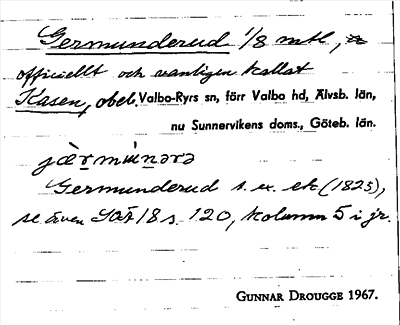 Germunderud 1/8 mtl,
officiellt och vanligen kallat
Kasen, obeb. Valbo-Ryrs sn, förr Valbo hd, Älvsb. län,
nu Sunnervikens doms., Göteb. län.
Germunderud s. ex. ek (1825),
se även SOÄ 18 s. 120, kolumn 5 i jr.
GUNNAR DROUGGE 1967.